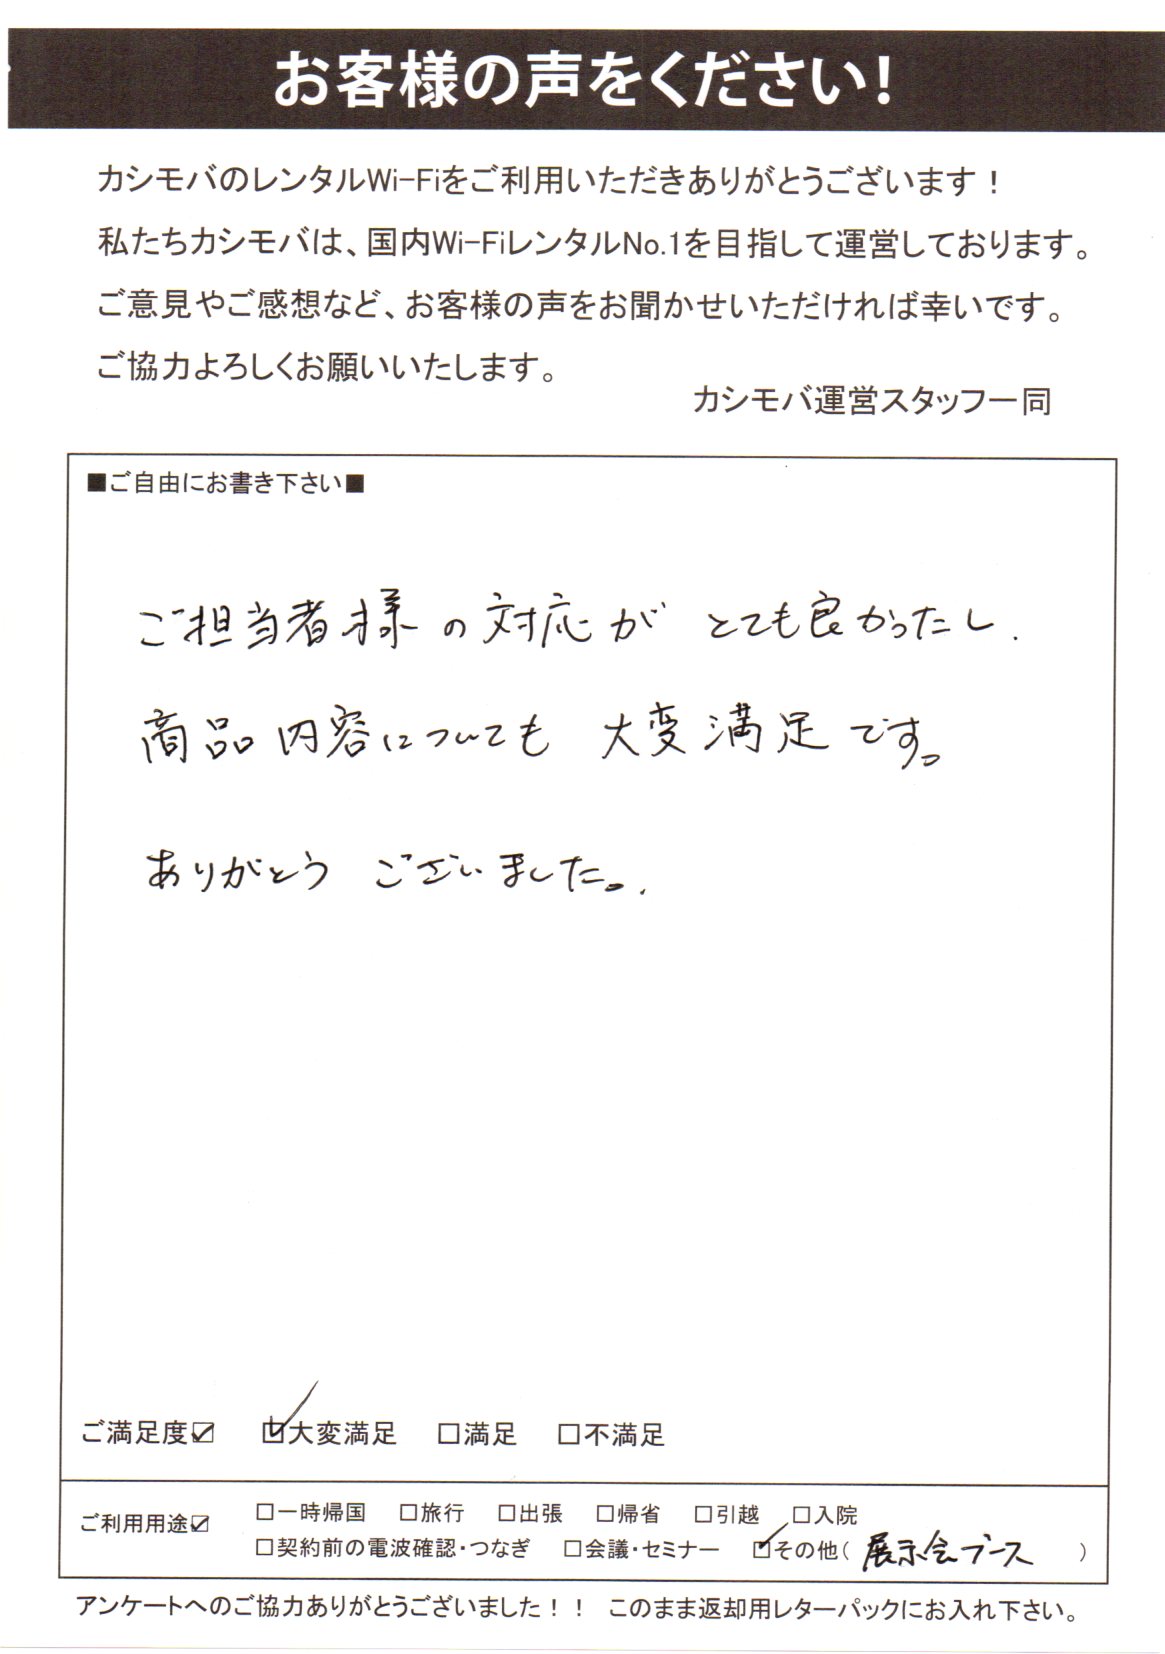 お客様の声をください!
カシモバのレンタルWi-Fiをご利用いただきありがとうございます！
私たちカシモバは、国内Wi-FiレンタルNo.1を目指して運営しております。
ご意見やご感想など、お客様の声をお聞かせいただければ幸いです。
ご協力よろしくお願いいたします。
カシモバ運営スタッフ一同
■ご自由にお書き下さい■
ご担当者様の対応が とても良かったし.
商品内容についても 大変満足です。
ありがとう ございました。.
ご満足度☑ ☑大変満足 □満足 □不満足
ご利用用途☑ □一時帰国 □旅行 □出張 □帰省 □引越 □入院
□契約前の電波確認・つなぎ □会議・セミナー ☑その他( 展示会ブース )
アンケートへのご協力ありがとうございました！！ このまま返却用レターパックにお入れ下さい。